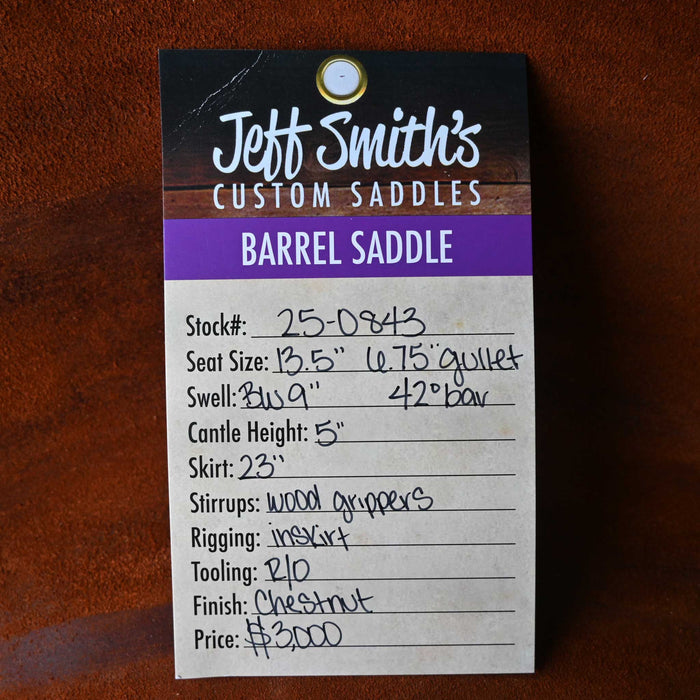 Jeff Smith's
CUSTOM SADDLES
BARREL SADDLE
Stock#: 25-0843
Seat Size: 13.5" 6.75" gullet
Swell: BW 9" 42° bar
Cantle Height: 5"
Skirt: 23"
Stirrups: wood grippers
Rigging: inskirt
Tooling: R/O
Finish: Chestnut
Price: $3,000